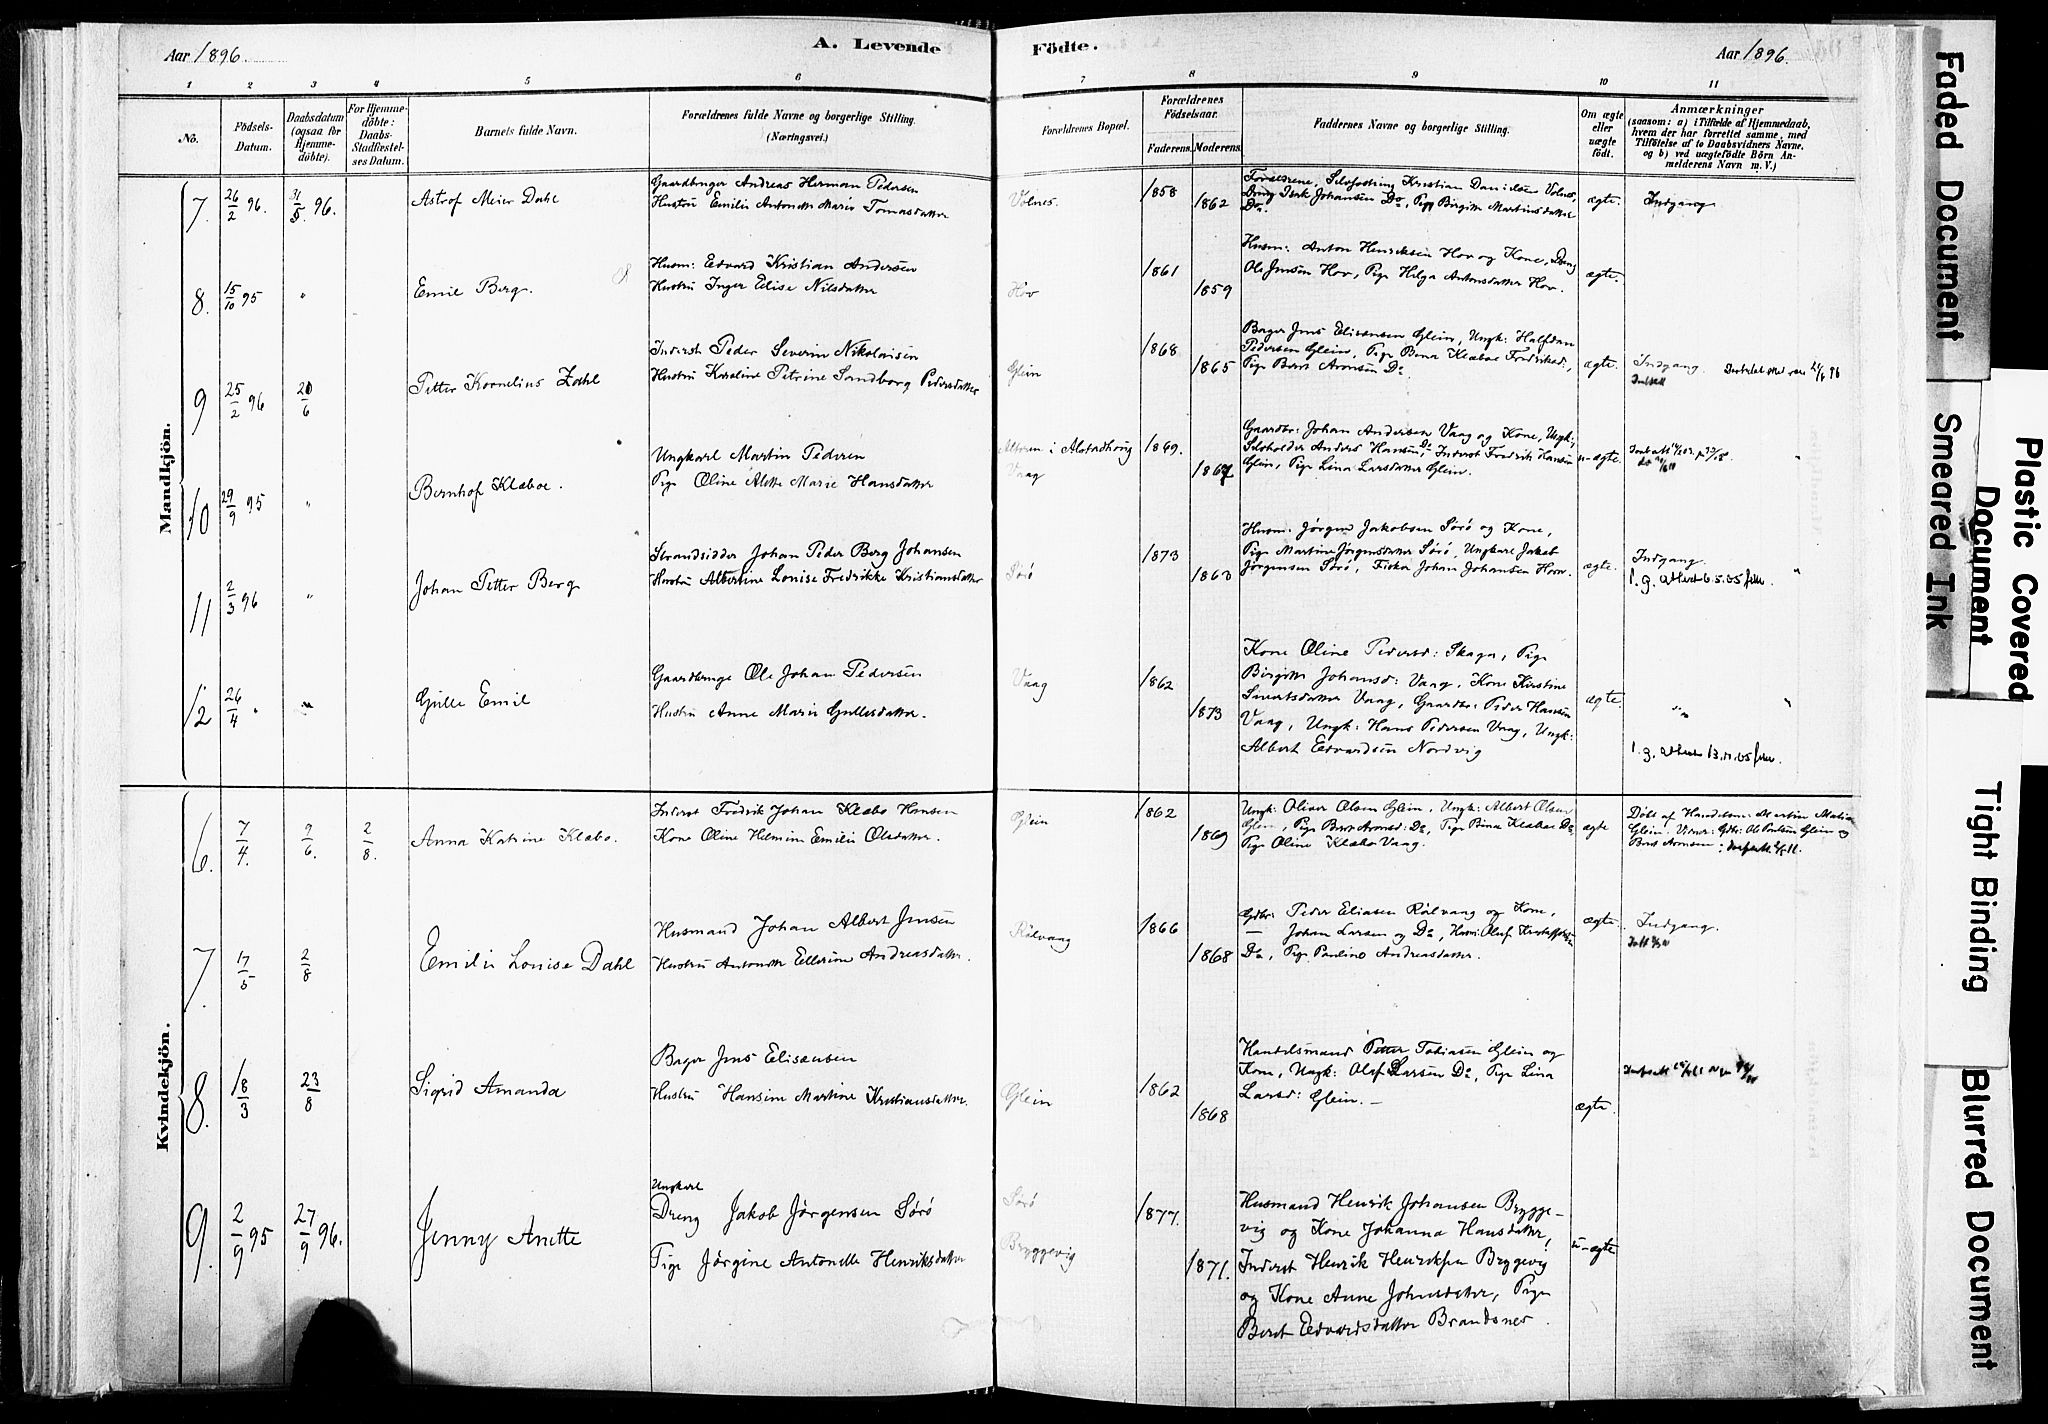 Aar 1896.
A. Levende
Födte.
Aar 1896.
1 2 3 4 5 6 7 8 9 10 11
Nö.
Födsels-Datum.
Daabsdatum (ogsaa for Hjemme-döbte).
For Hjemme-döbte: Daabs-Stadfæstelses Datum.
Barnets fulde Navn.
Forældrenes fulde Navne og borgerlige Stilling.
(Næringsvei.)
Forældrenes Bopæl.
Forældrenes Födselsaar.
Faderens. Moderens.
Faddernes Navne og borgerlige Stilling.
Om ægte eller uægte födt.
Anmærkninger
(saasom: a) i Tilfælde af Hjemmedaab, hvem der har forrettet samme, med Tilföielse af to Daabsvidners Navne, og b) ved uægtefödte Börn Anmelderens Navn m. V.)
Mandkjön.
7. 26/2 96. 31/5 96.
Astrof Meier Dahl
Gaardbruger Andreas Herman Pedersen
Hustru Emilie Antonette Marie Tomasdatter
Volnes.
1858
1862
Forældrene, Kristian Danielsen Volnes,
Dreng Johansen Do, Pige Birgitte Martinusdatter
Do.
ægte.
Indgang
8. 15/10 95 "
Emil Berg.
Husm: Edvard Kristian Andersen
Hustru Inger Elise Nilsdatter
Hov
1861
1859
Husm: Anton Henriksen Hov og Kone, Dreng
Ole Jensen Hov, Pige Helga Antonsdatter Hov.
ægte.
9 25/2 96 20/6
Petter Kornelius Zahl
Inderst Peder Severin Nikolaisen
Hustru Karoline Petrine Sandborg Pedersdatter
Glein
1868
1865
Bager Jens Elisæusen Glein, Ungk: Halfdan
Pedersen Glein, Pige Bina Klæboe Fredriksd:,
Pige Berit Aronsen Do
ægte.
Indgang.
10 29/9 95 "
Bernhof Klæboe.
Ungkarl Martin Pedersen
Pige Oline Alette Marie Hansdatter
Alteren i Alstadhoug
Vaag
1869.
1867
Gaardbr: Johan Andersen Vaag og Kone, Ungk:,
Anders Hansen Do, Inderst Fredrik Hansen
Glein, Pige Lina Larsdatter Glein.
u-ægte.
11 2/3 96 "
Johan Petter Berg
Strandsidder Johan Peder Berg Johansen
Hustru Albertine Louise Fredrikke Kristiansdatter
Sörö
1873
1863
Husm: Jörgen Jakobsen Sörö og Kone,
Pige Martine Jörgensdatter Sörö, Ungkarl Jakob
Jörgensen Sörö, Fisker Johan Johansen Horn.
ægte.
Indgang
12 26/4 "
Gulle Emil
Gaardbruger Ole Johan Pedersen
Hustru Anne Marie Gullesdatter.
Vaag
1862
1873
Kone Oline Pedersd: Skaga, Pige
Birgitte Johansd: Vaag, Kone Kirstine
Sivertsdatter Vaag, Gaardbr: Peder Hansen
Vaag, Ungk: Hans Pedersen Vaag, Ungk:
Albert Edvardsen Nordvig
ægte.
Kvindekjön.
6. 7/4. 9/6. 2/8.
Anna Katrine Klæbo.
Inderst Fredrik Johan Klæbo Hansen
Kone Oline Helmine Emilie Olsdatter.
Glein
1862
1869
Ungk: Oliver Olsen Glein, Ungk: Albert Olsen
Glein, Pige Berit Aronsd: Do, Pige Bina Klæboe Do
Pige Oline Klæbo Vaag.
ægte
Döbt af Handelsm: Martin
Glein. Vidner: Gdbr: Ole Glein og
Berit Aronsen
7. 17/5 2/8
Emilie Louise Dahl
Husmand Johan Albert Jensen
Hustru Antonette Ellerine Andreasdatter.
Rölvaag
1866
1868
Gdbr: Peder Eliasen Rölvaag og Kone,
— Johan Larsen og Do, Husm: Oluf
Do, Pige Pauline Andreasdatter.
ægte.
Indgang.
8. 18/3 23/8
Sigrid Amanda
Bager Jens Elisæusen
Hustru Hansine Martine Kristiansdatter.
Glein
1862
1868
Handelsmand Petter Tobiasen Glein og
Kone, Ungk: Olef Larsen Do, Pige Lina
Larsd: Glein. —
ægte.
9. 2/9 95 27/9 96.
Jenny Anette
Ungkarl
Dreng Jakob Jörgensen Sörö
Pige Jörgine Antonette Henriksdatter
Sörö
Bryggevig
1877.
1871.
Husmand Henrik Johansen Brygge-
vig og Kone Johanna Hansdatter,
Inderst Henrik Henriksen Bryggevig
og Kone Anne Johnsdatter, Pige
Berit Edvardsdatter Brandsnes.
u-ægte
Faded Document
Smeared Ink
Plastic Covered Document
Tight Binding
Blurred Document